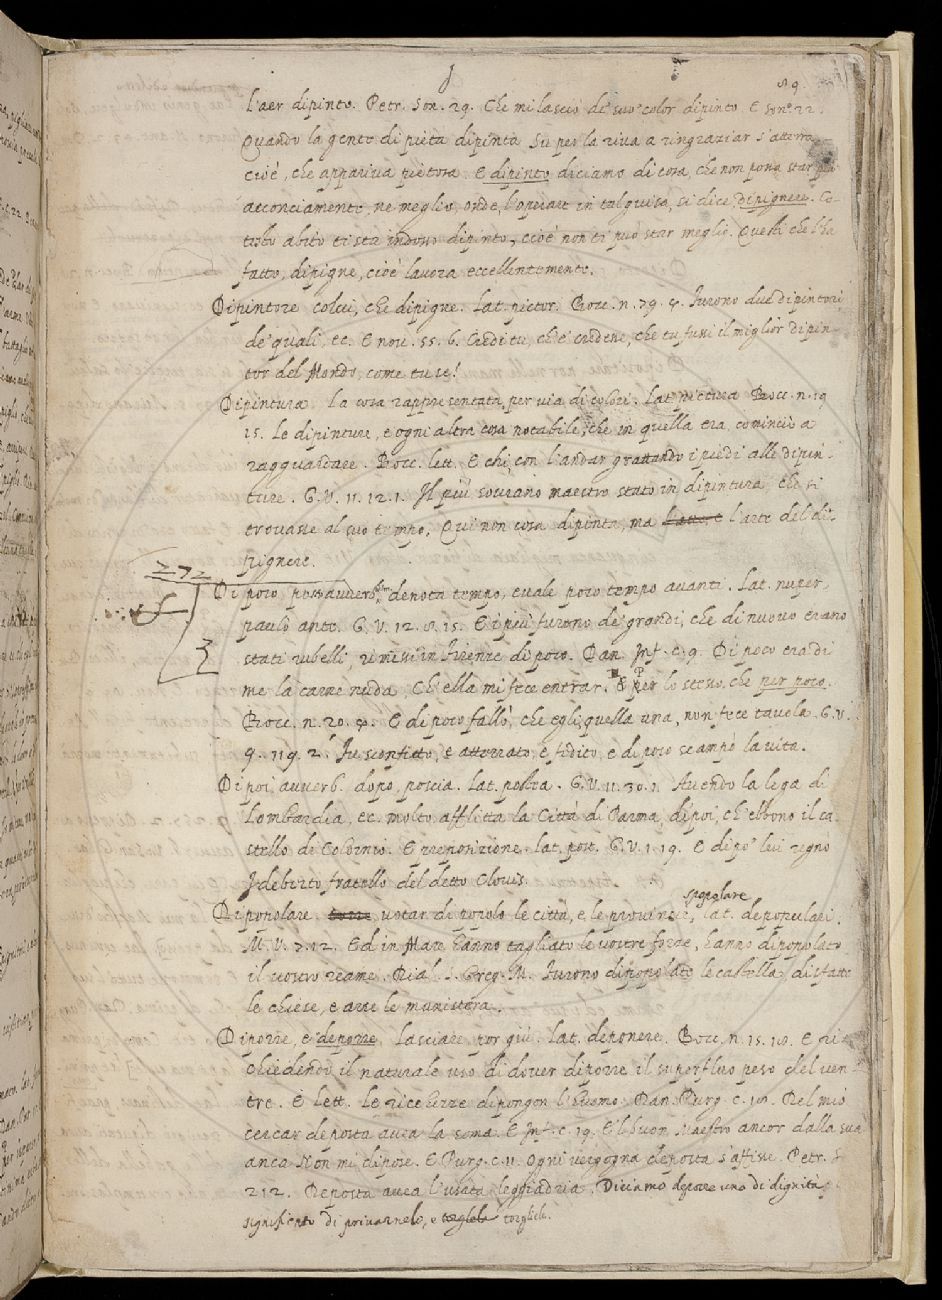 89
l'aer dipinto. Petr. Son. 29. Che mi lasciò de' suo' color dipinto. E son. 22.
Quando la gente di pietà dipinta Su per la riva a ringraziar s'atterra
cioè, che appariva pietosa. E dipinto diciamo di cosa, che non possa star più
acconciamente, ne meglio, onde, l'operare in tal guisa, si dice dipignere. Co-
testo abito ti sta indosso dipinto, cioè non ti può star meglio. Questi che l'ha
fatto, dipigne, cioè lavora eccellentemente.
Dipintore Colui, che dipigne. Lat. pictor. Bocc. n. 79. 4. Furono due dipintori
de' quali, ec. E nov. 55. 6. Credi tu, ch'e' credesse, che tu fussi il miglior dipin-
tor del Mondo, come tu se'!
Dipintura. La cosa rappresentata per via di colori. Lat. pictura Bocc. n. 19
15. Le dipinture, e ogni altra cosa notabile, che in quella era, cominciò a
ragguardare. Bocc. lett. E chi, con l'andar grattando i piedi alle dipin-
ture. G. V. 11. 12. 1. Il più sovrano maestro stato in dipintura che si
trovasse al suo tempo. Qui non cosa dipinta, ma l'arte del di-
pignere.
272
Di poco, posto avverb. denota tempo, e vale poco tempo avanti. Lat. nuper,
paulò ante. G. V. 12. 8. 15. E i più furono de' grandi, che di nuovo erano
stati rubelli, rimessi in Firenze di poco. Dan. Inf. c. 9. Di poco era di
me la carne nuda, Ch'ella mi fece entrar. E per lo stesso, che per poco.
Bocc. n. 20. 4. E di poco fallò, che egli quella una, non fece tavola. G. V.
9. 119. 2. Fu sconfitto, e atterrato, e fedito, e di poco scampò la vita.
Dipoi avverb. dopo, poscia. Lat. postea. G. V. 11. 30. 1. Avendo la lega di
Lombardia, ec. molto afflitta la Città di Parma, dipoi, ch'ebbono il ca-
stello di Colornio. E preposizione. lat. post. G. V. 1. 19. E dipo' lui regnò
Ideberto fratello del detto Clovis.
Dipopolare. votar di popolo le città, e le provincie, spopolare lat. depopulari.
M. V. 7. 12. Ed in Mare hanno tagliato le vostre forze, hanno dipopolato
il vostro reame. Dial. S. Greg. M. Furono dipopolate le castella, disfatte
le chiese, e arse le munistera.
Diporre, e deporre Lasciare, por giù. Lat. deponere. Bocc. n. 15. 18. E ri-
chiedendo il naturale uso di dover diporre il superfluo peso del ven-
tre. E lett. Le ricchezze dipongon l'huomo. Dan. Purg. c. 18. Del mio
cercar deposta avea la soma. E Inf. c. 19. E'l buon Maestro ancor dalla sua
anca Non mi dipose. E Purg. c. 11. Ogni vergogna deposta s'affisse. Petr. S.
212. Deposta avea l'usata leggiadria. Diciamo deporre uno di dignità
significato di privarnelo, e torglela torgliele.